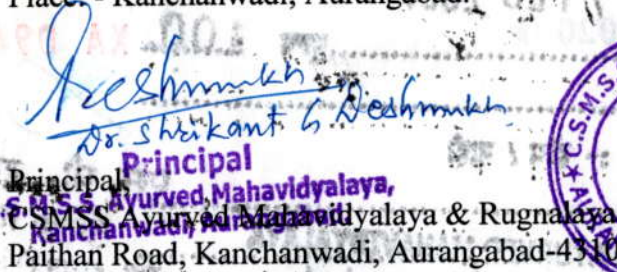 Place: - Kanchanwadi, Aurangabad.
Deshmukh
Dr. Shrikant G Deshmukh
Principal
Principal,
C.S.M.S.S. Ayurved Mahavidyalaya,
Kanchanwadi, Aurangabad.
CSMSS Ayurved Mahavidyalaya & Rugnalaya
Paithan Road, Kanchanwadi, Aurangabad-4310
C.S.M.S.S.